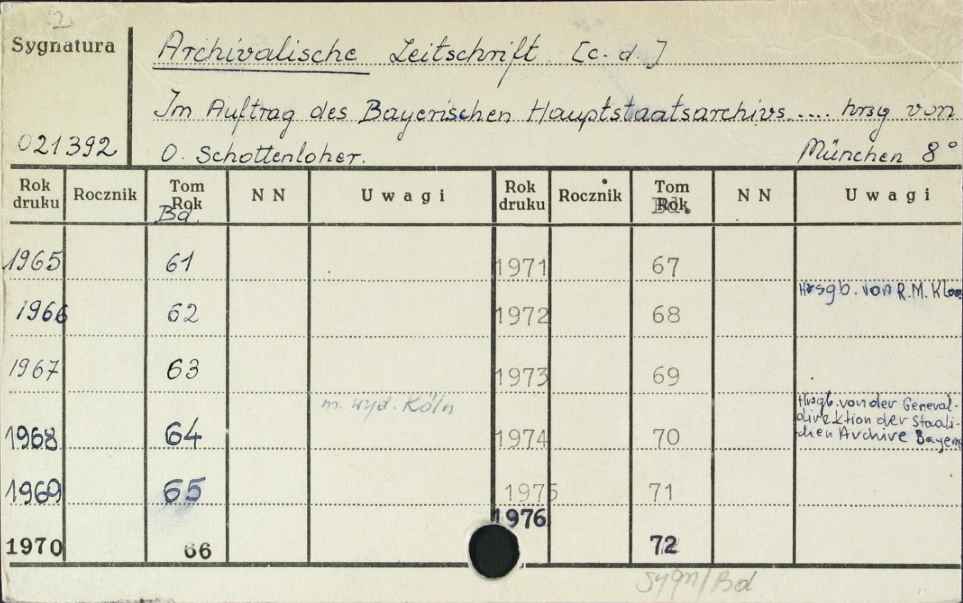 2
Sygnatura
Archivalische Zeitschrift. [c. d.]
Im Auftrag des Bayerischen Hauptstaatsarchivs .... hrsg von
021392
O. Schottenloher.
München 8°
Rok druku Rocznik Tom Rok Bd. NN Uwagi Rok druku Rocznik Tom Rok Bd. NN Uwagi
1965 61 1971 67
Hrsgb. von R.M. Kloos
1966 62 1972 68
1967 63 1973 69
m. wyd. Köln
Hrsgb. von der General-
direktion der Staatli-
chen Archive Bayerns
1968 64 1974 70
1969 65 1975 71
1970 66 1976 72
sygn/Bd